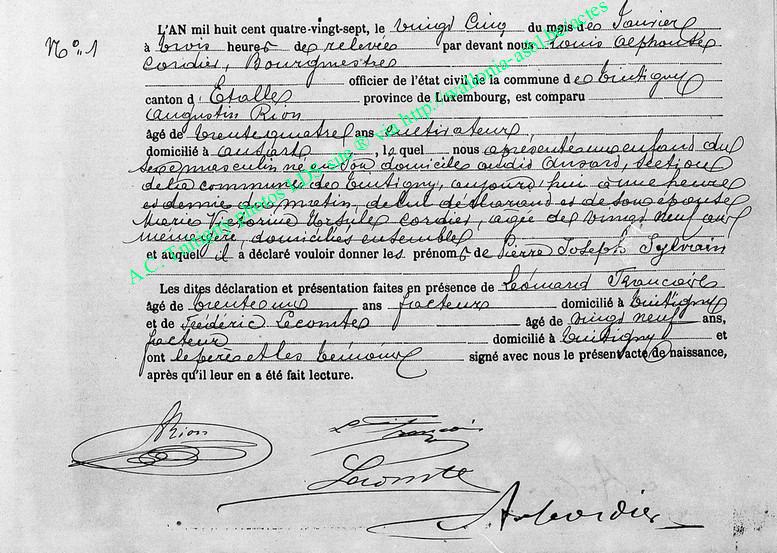 N°. 1
L'AN mil huit cent quatre-vingt-sept, le vingt cinq du mois de Janvier
à trois heures de relevée par devant nous Louis Alphonse
Cordier, Bourgmestre
officier de l'état civil de la commune de Tintigny
canton d'Etalle province de Luxembourg, est comparu
Augustin Rion
âgé de trente quatre ans cultivateur
domicilié à Ansart, lequel nous a présenté un enfant du
sexe masculin né en son domicile audit Ansart, section
de la commune de Tintigny, aujourd'hui à une heure
et demie du matin, de lui déclarant et de son épouse
Marie Victorine Ursule Cordier, agée de vingt neuf ans
ménagère, domiciliés ensemble
et auquel il a déclaré vouloir donner les prénoms de Pierre Joseph Sylvain
Les dites déclaration et présentation faites en présence de Léonard François
âgé de trente ans facteur domicilié à Tintigny
et de Frédéric Lecomte âgé de vingt neuf ans,
facteur domicilié à Tintigny et
ont le père et les témoins signé avec nous le présent acte de naissance,
après qu'il leur en a été fait lecture.
A.C. Tintigny photos LDS site ® via http://wallonia-asbl.be/actes
ARion
François
Lecomte
A Cordier